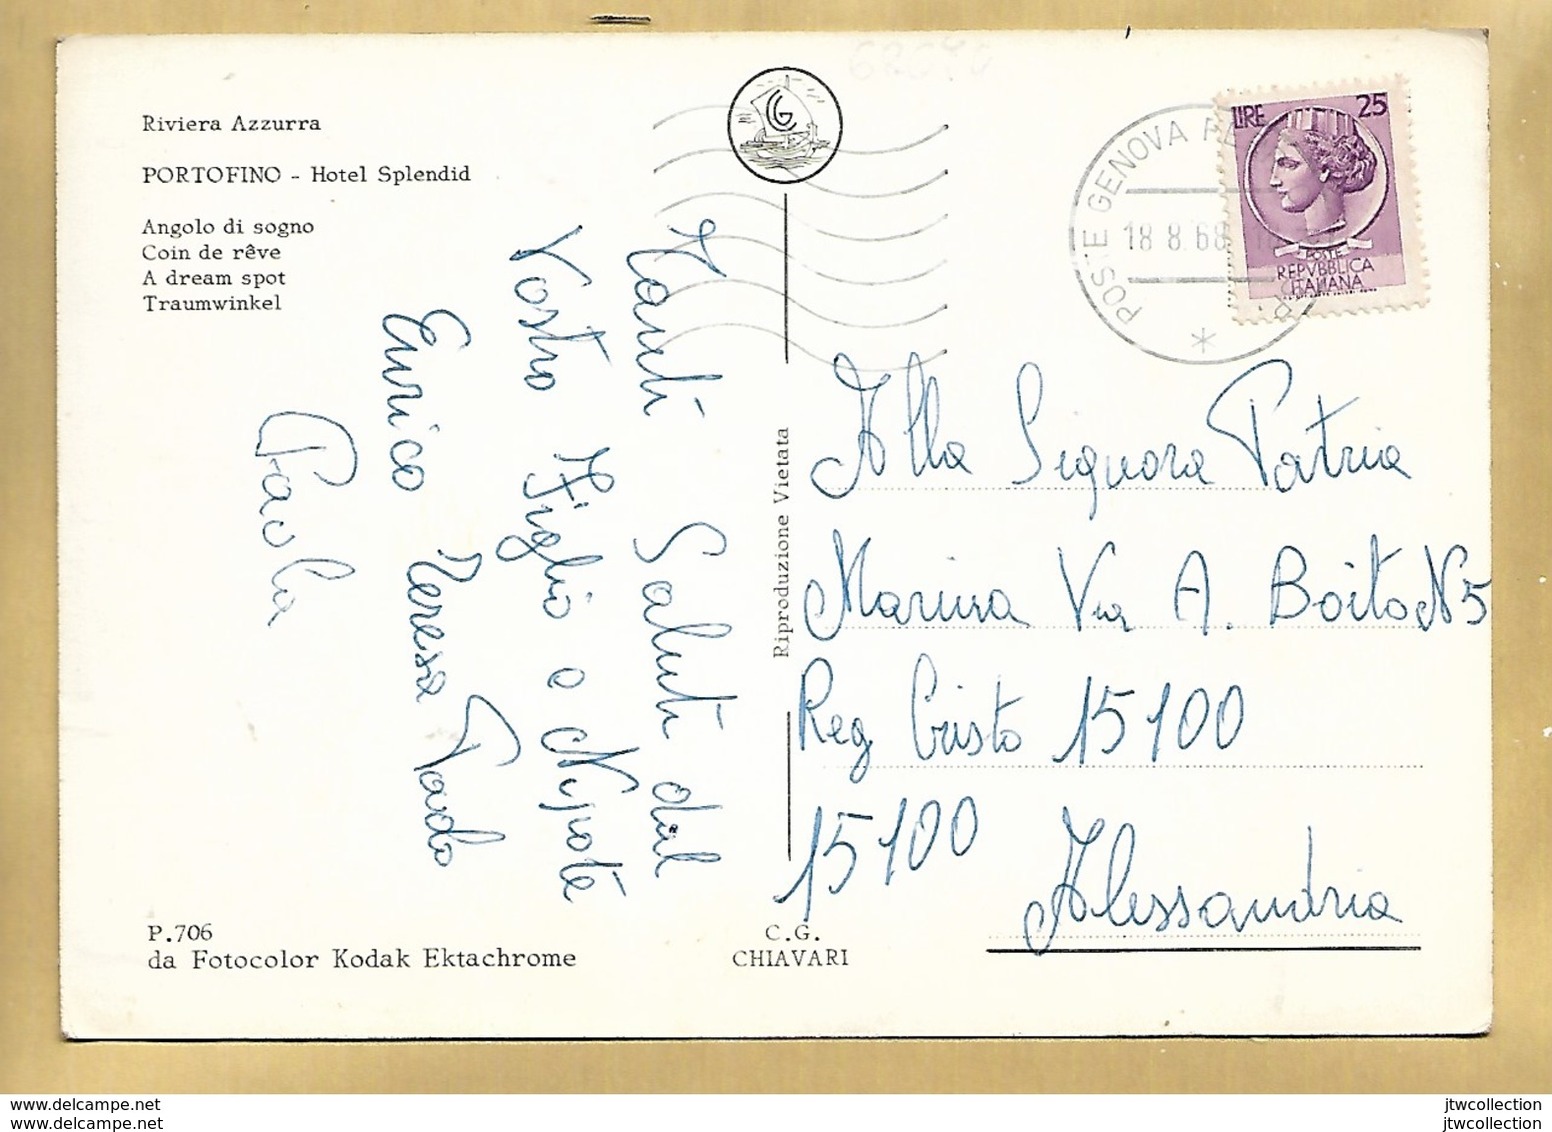 Riviera Azzurra
PORTOFINO - Hotel Splendid
Angolo di sogno
Coin de rêve
A dream spot
Traumwinkel
CG
POSTE GENOVA FE
18 8.68
LIRE 25
POSTE
REPVBBLICA
ITALIANA
Tanti Saluti dal
Vostro Figlio e Nipote
Enrico Teresa
Paola
Riproduzione Vietata
Alla Signora Patria
Marina Via A. Boito N 5
Reg Cristo 15100
15100
Alessandria
P.706
da Fotocolor Kodak Ektachrome
C.G.
CHIAVARI
jtwcollection
jtwcollection
jtwcollection
jtwcollection